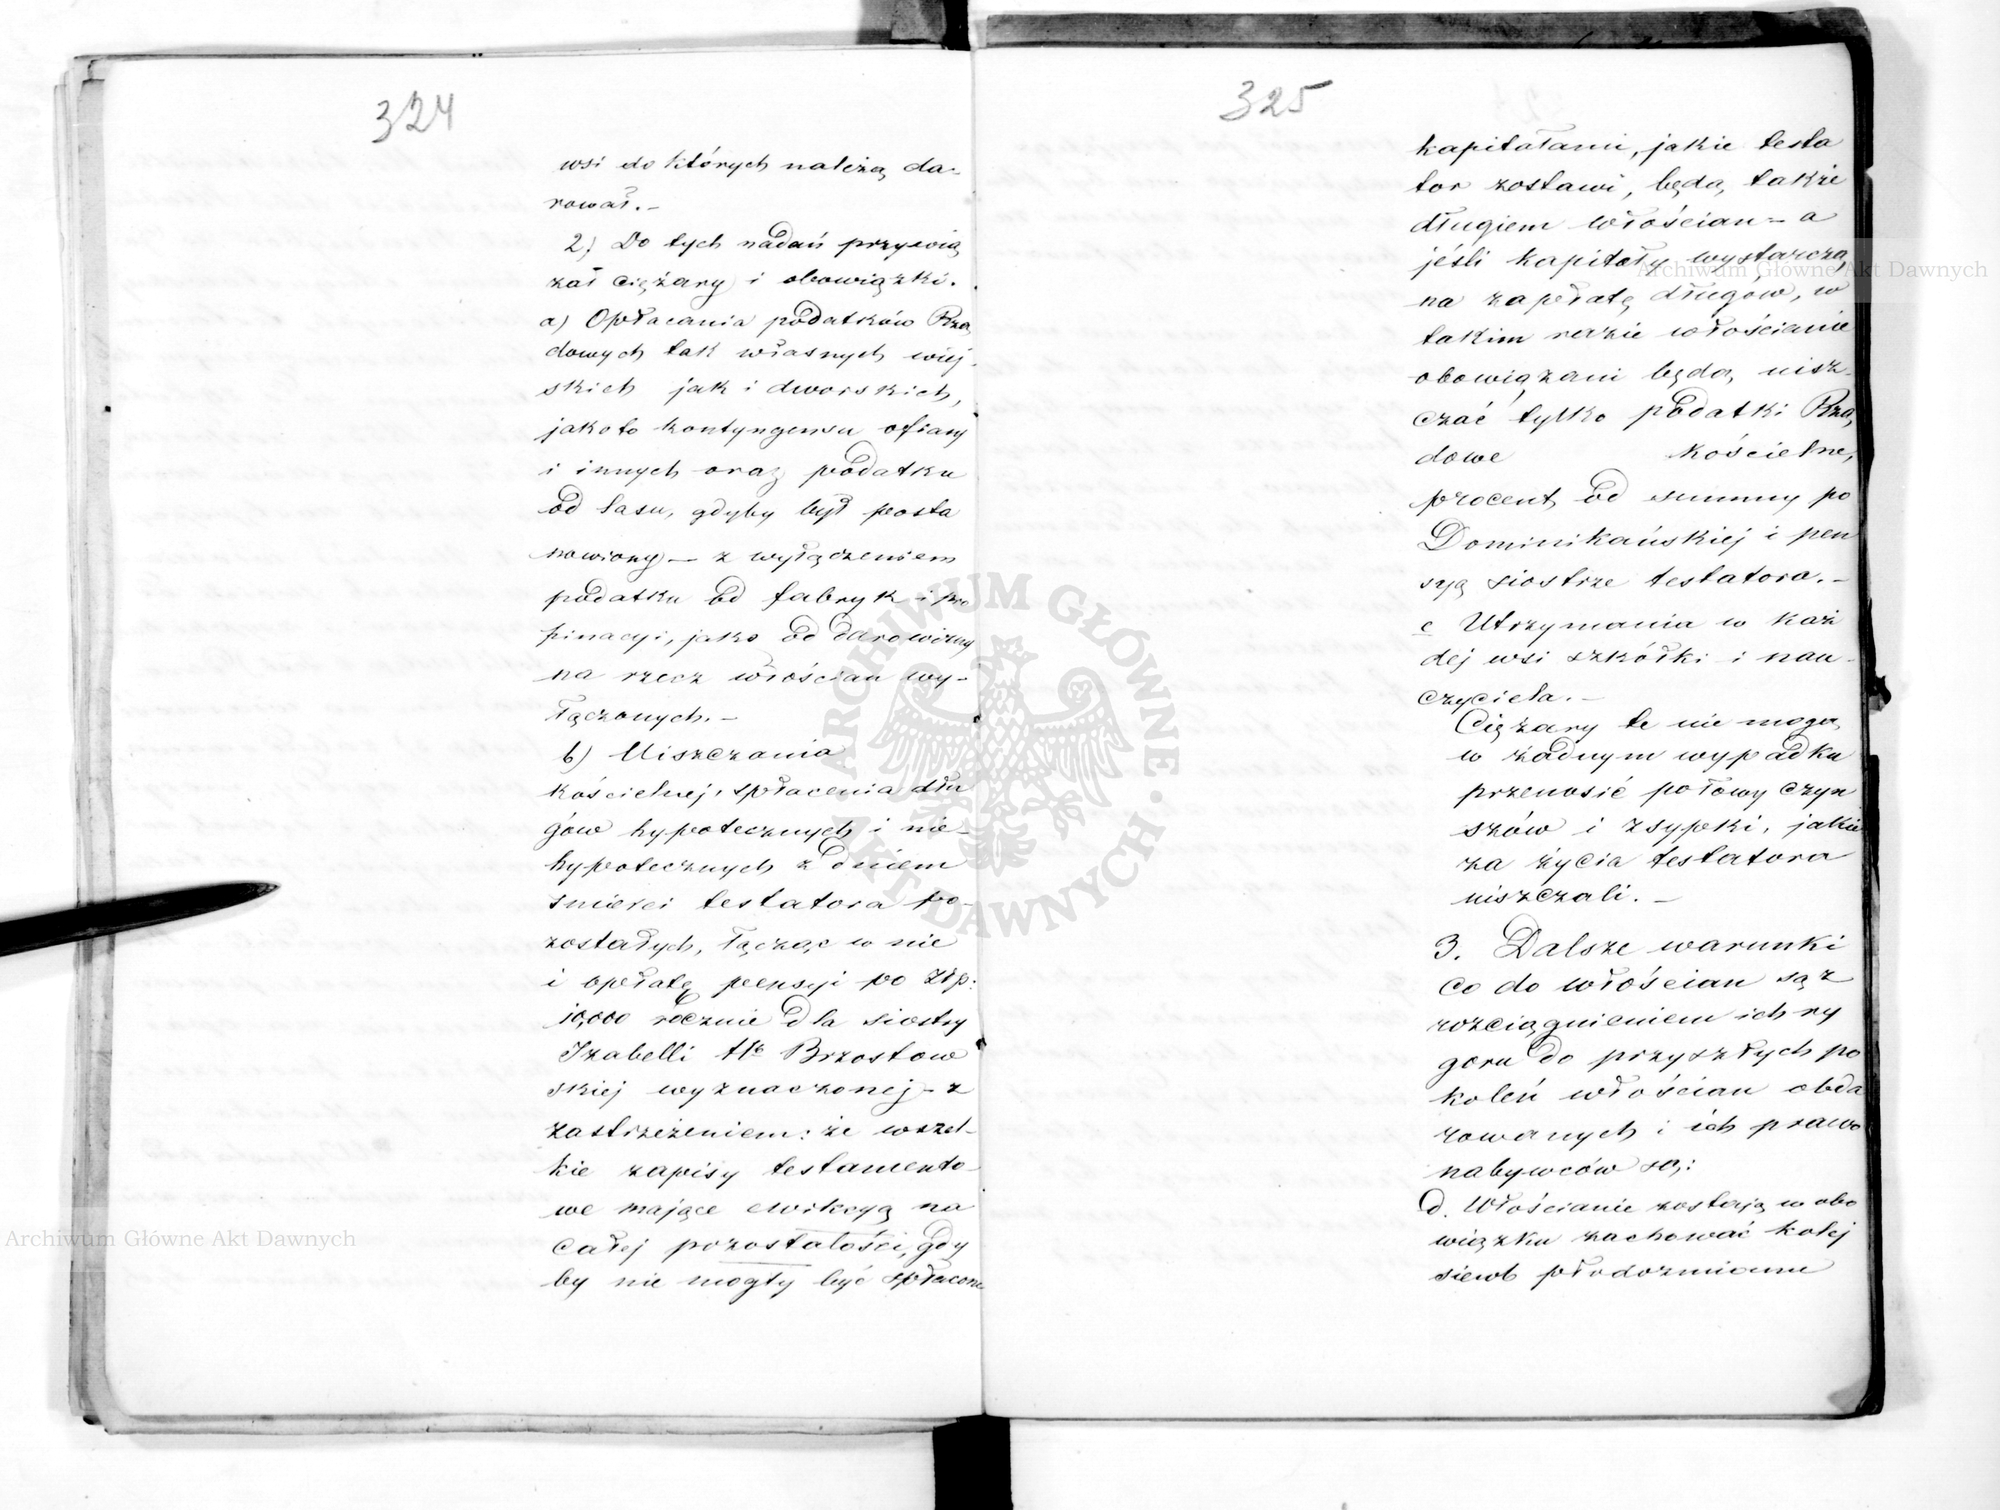 324
wsi do których należą da-
rował. –
2) Do tych nadań przywią
zał ciężary i obowiązki.
a) Opłacania podatków Rzą
dowych tak własnych wiej
skich jak i dworskich,
jakoto kontyngensu ofiary
i innych oraz podatku
od lasu, gdyby był posta
nowiony – z wyłączeniem
podatku od fabryk i pro
pinacyi, jako od darowizny
na rzecz włościan wy-
łączonych. –
b) Uiszczania
kościelnej, spłacenia dłu
gów hypotecznych i nie-
hypotecznych z dniem
śmierci testatora po-
zostałych, łącząc w nie
i opłatę pensyi po Złp:
10,000 rocznie dla siostry
Izabelli Hr Brzostow
skiej wyznaczonej – z
zastrzeżeniem: że wszel-
kie zapisy testamento-
we mające ewikcyą na
całej pozostałości, gdy
by nie mogły być spłacone
325
kapitałami, jakie testa
tor zostawi, będą także
długiem włościan – a
jeśli kapitały wystarczą
na zapłatę długów, w
takim razie włościanie
obowiązani będą uisz-
czać tylko podatki Rzą,
dowe kościelne,
procent od summy po
Dominikańskiej i pen
syą siostrze testatora. –
c Utrzymania w każ
dej wsi szkółki i nau-
czyciela. –
Ciężary te nie mogą
w żadnym wypadku
przenosić połowy czyn
szów i zsypki, jakie
za życia testatora
uiszczali. –
3. Dalsze warunki
co do włościan są z
rozciągnieniem ich ry
goru do przyszłych po
koleń włościan obda
rowanych i ich prawo
nabywców są:
d. Włościanie zostają w obo
wiązku zachować kolej
siewb płodozmianu
Archiwum Główne Akt Dawnych
Archiwum Główne Akt Dawnych
ARCHIWUM GŁÓWNE AKT DAWNYCH